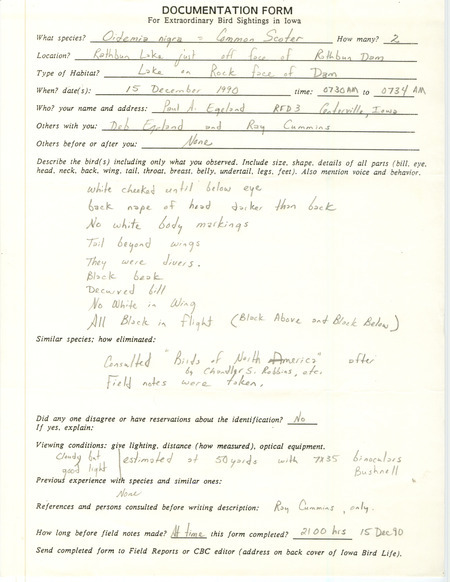 DOCUMENTATION FORM
For Extraordinary Bird Sightings in Iowa
What species? Oidemia nigra = Common Scoter How many? 2
Location? Rathbun Lake just off face of Rathbun Dam
Type of Habitat? Lake on Rock face of Dam
When? date(s): 15 December 1990 time: 0730 AM to 0734 AM
Who? your name and address: Paul A. Egeland RFD 3 Centerville, Iowa
Others with you: Deb Egeland and Ray Cummins
Others before or after you: None
Describe the bird(s) including only what you observed. Include size, shape, details of all parts (bill, eye,
head, neck, back, wing, tail, throat, breast, belly, undertail, legs, feet). Also mention voice and behavior.
White cheeked until below eye
back nape of head darker than back
No white body markings
Tail beyond wings
They were divers.
Black beak
Decurved bill
No White in Wing
All Black in flight (Black Above and Black Below)
Similar species; how eliminated:
Consulted "Birds of North America" after
by Chandler S. Robbins, etc.
Field notes were taken.
Did any one disagree or have reservations about the identification? No
If yes, explain:
Viewing conditions: give lighting, distance (how measured), optical equipment.
Cloudy but estimated at 50 yards with 7X35 binoculars
good light Bushnell
Previous experience with species and similar ones:
None
References and persons consulted before writing description: Ray Cummins, only.
How long before field notes made? At time this form completed? 2100 hrs 15 Dec 90
Send completed form to Field Reports or CBC editor (address on back cover of Iowa Bird Life).